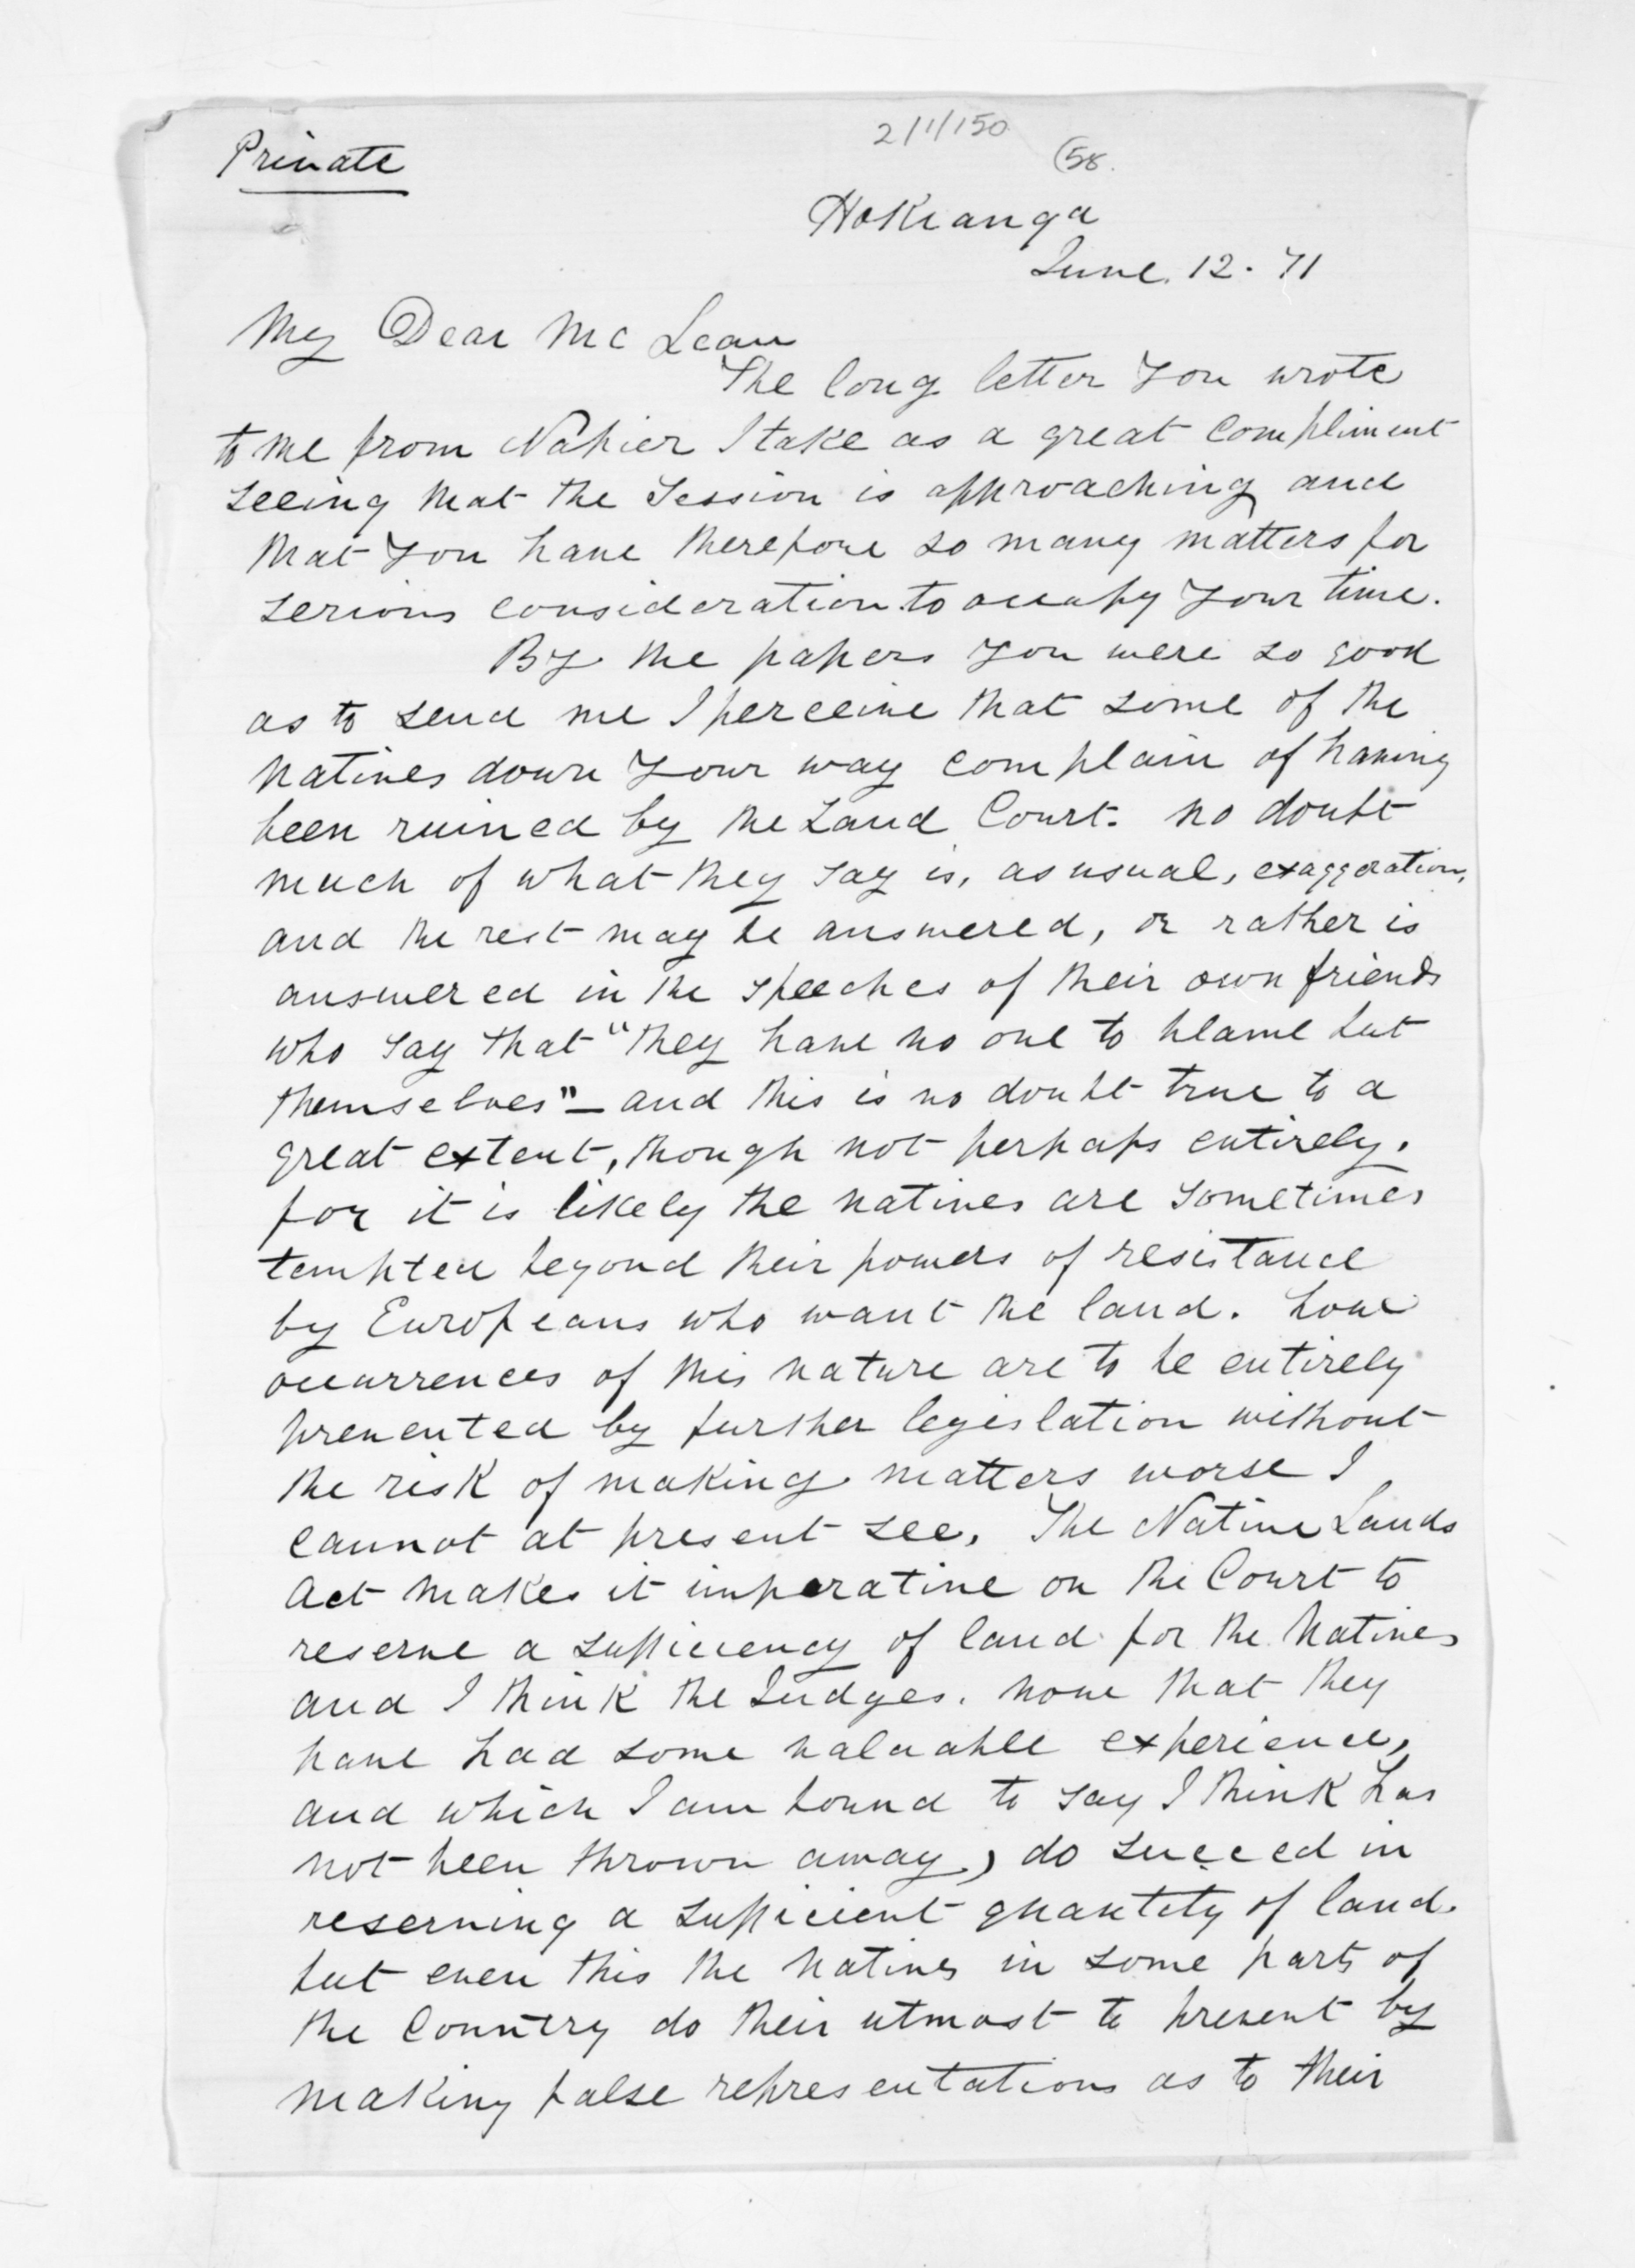 Private
2/1/150
(58.
Hokianga
June. 12. 71
My Dear McLean
The long letter you wrote
to me from Napier I take as a great compliment
seeing that the Session is approaching and
that you have therefore so many matters for
serious consideration to occupy your time.
By the papers you were so good
as to send me I perceive that some of the
natives down your way complain of having
been ruined by the Land Court. no doubt
much of what they say is, as usual, exaggeration,
and the rest may be answered, or rather is
answered in the speeches of their own friends
who say that "they have no one to blame but
themselves" — and this is no doubt true to a
great extent, though not perhaps entirely.
for it is likely the natives are sometimes
tempted beyond their powers of resistance
by Europeans who want the land. how
occurrences of this nature are to be entirely
prevented by further legislation without
the risk of making matters worse I
cannot at present see. The Native Lands
Act makes it imperative on the Court to
reserve a sufficiency of land for the Natives
and I think the Judges. now that they
have had some valuable experience,
and which I am bound to say I think has
not been thrown away, do succeed in
reserving a sufficient quantity of land.
but even this the natives in some parts of
the Country do their utmost to prevent by
making false representations as to their